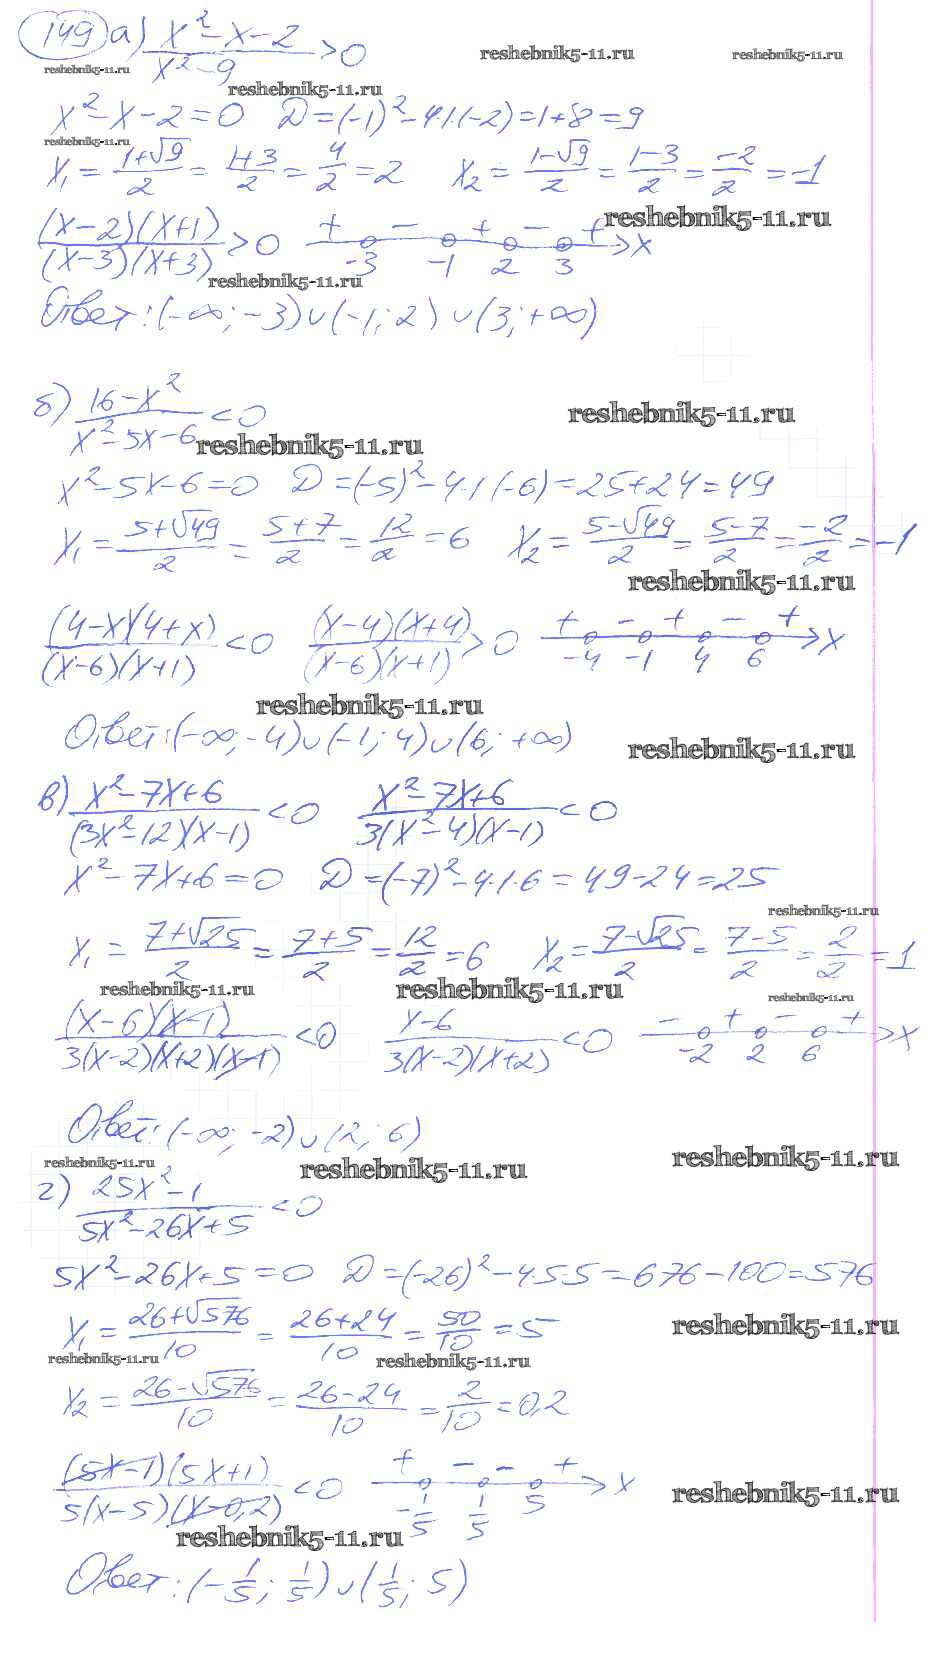 149 а) (x²-x-2)/(x²-9) >0
reshebnik5-11.ru
reshebnik5-11.ru
reshebnik5-11.ru
reshebnik5-11.ru
x²-x-2=0 D=(-1)²-4·1·(-2)=1+8=9
reshebnik5-11.ru
x₁=(1+√9)/2=(1+3)/2=4/2=2 x₂=(1-√9)/2=(1-3)/2=-2/2=-1
reshebnik5-11.ru
((x-2)(x+1))/((x-3)(x+3))>0 + - + - + -3 -1 2 3 x
reshebnik5-11.ru
Ответ: (-∞; -3)∪(-1; 2)∪(3; +∞)
б) (16-x²)/(x²-5x-6)<0
reshebnik5-11.ru
reshebnik5-11.ru
x²-5x-6=0 D=(-5)²-4·1·(-6)=25+24=49
x₁=(5+√49)/2=(5+7)/2=12/2=6 x₂=(5-√49)/2=(5-7)/2=-2/2=-1
reshebnik5-11.ru
((4-x)(4+x))/((x-6)(x+1))<0 ((x-4)(x+4))/((x-6)(x+1))>0 + - + - + -4 -1 4 6 x
reshebnik5-11.ru
Ответ: (-∞; -4)∪(-1; 4)∪(6; +∞)
reshebnik5-11.ru
в) (x²-7x+6)/((3x²-12)(x-1))<0 (x²-7x+6)/(3(x²-4)(x-1))<0
x²-7x+6=0 D=(-7)²-4·1·6=49-24=25
reshebnik5-11.ru
x₁=(7+√25)/2=(7+5)/2=12/2=6 x₂=(7-√25)/2=(7-5)/2=2/2=1
reshebnik5-11.ru
reshebnik5-11.ru
reshebnik5-11.ru
((x-6)(x-1))/(3(x-2)(x+2)(x-1))<0 (x-6)/(3(x-2)(x+2))<0 - + - + -2 2 6 x
Ответ: (-∞; -2)∪(2; 6)
reshebnik5-11.ru
reshebnik5-11.ru
reshebnik5-11.ru
г) (25x²-1)/(5x²-26x+5)<0
5x²-26x+5=0 D=(-26)²-4·5·5=676-100=576
x₁=(26+√576)/10=(26+24)/10=50/10=5
reshebnik5-11.ru
reshebnik5-11.ru
reshebnik5-11.ru
x₂=(26-√576)/10=(26-24)/10=2/10=0,2
((5x-1)(5x+1))/(5(x-5)(x-0,2))<0 + - - + -1/5 1/5 5 x
reshebnik5-11.ru
reshebnik5-11.ru
Ответ: (-1/5; 1/5)∪(1/5; 5)